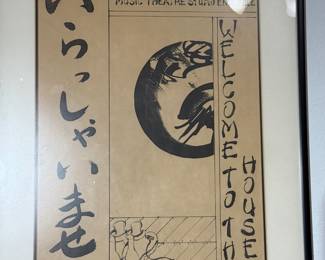 いらっしゃいませ
MUSIC THEATRE STUDIO ENSEMBLE
WELCOME TO TH
HOUSE